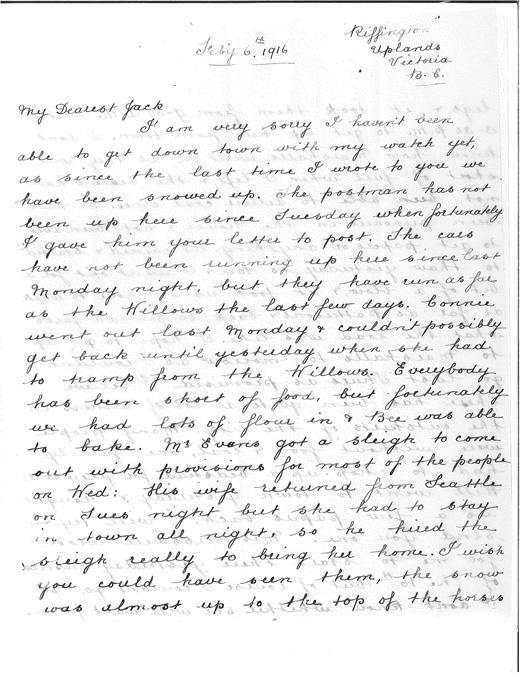 Feby 6th 1916
Riffington
Uplands
Victoria
B.C.
My Dearest Jack
I am very sorry I haven't been
able to get down town with my watch yet,
as since the last time I wrote to you we
have been snowed up. The postman has not
been up here since Tuesday when fortunately
I gave him your letter to post. The cars
have not been running up here since last
Monday night, but they have run as far
as the Willows the last few days. Connie
went out last Monday & couldn't possibly
get back until yesterday when she had
to tramp from the Willows. Everybody
has been short of food, but fortunately
we had lots of flour in & Bee was able
to bake. Mr Evans got a sleigh to come
out with provisions for most of the people
on Wed: His wife returned from Seattle
on Tues night but she had to stay
in town all night, so he hired the
sleigh really to being her home. I wish
you could have seen them, the snow
was almost up to the top of the horses